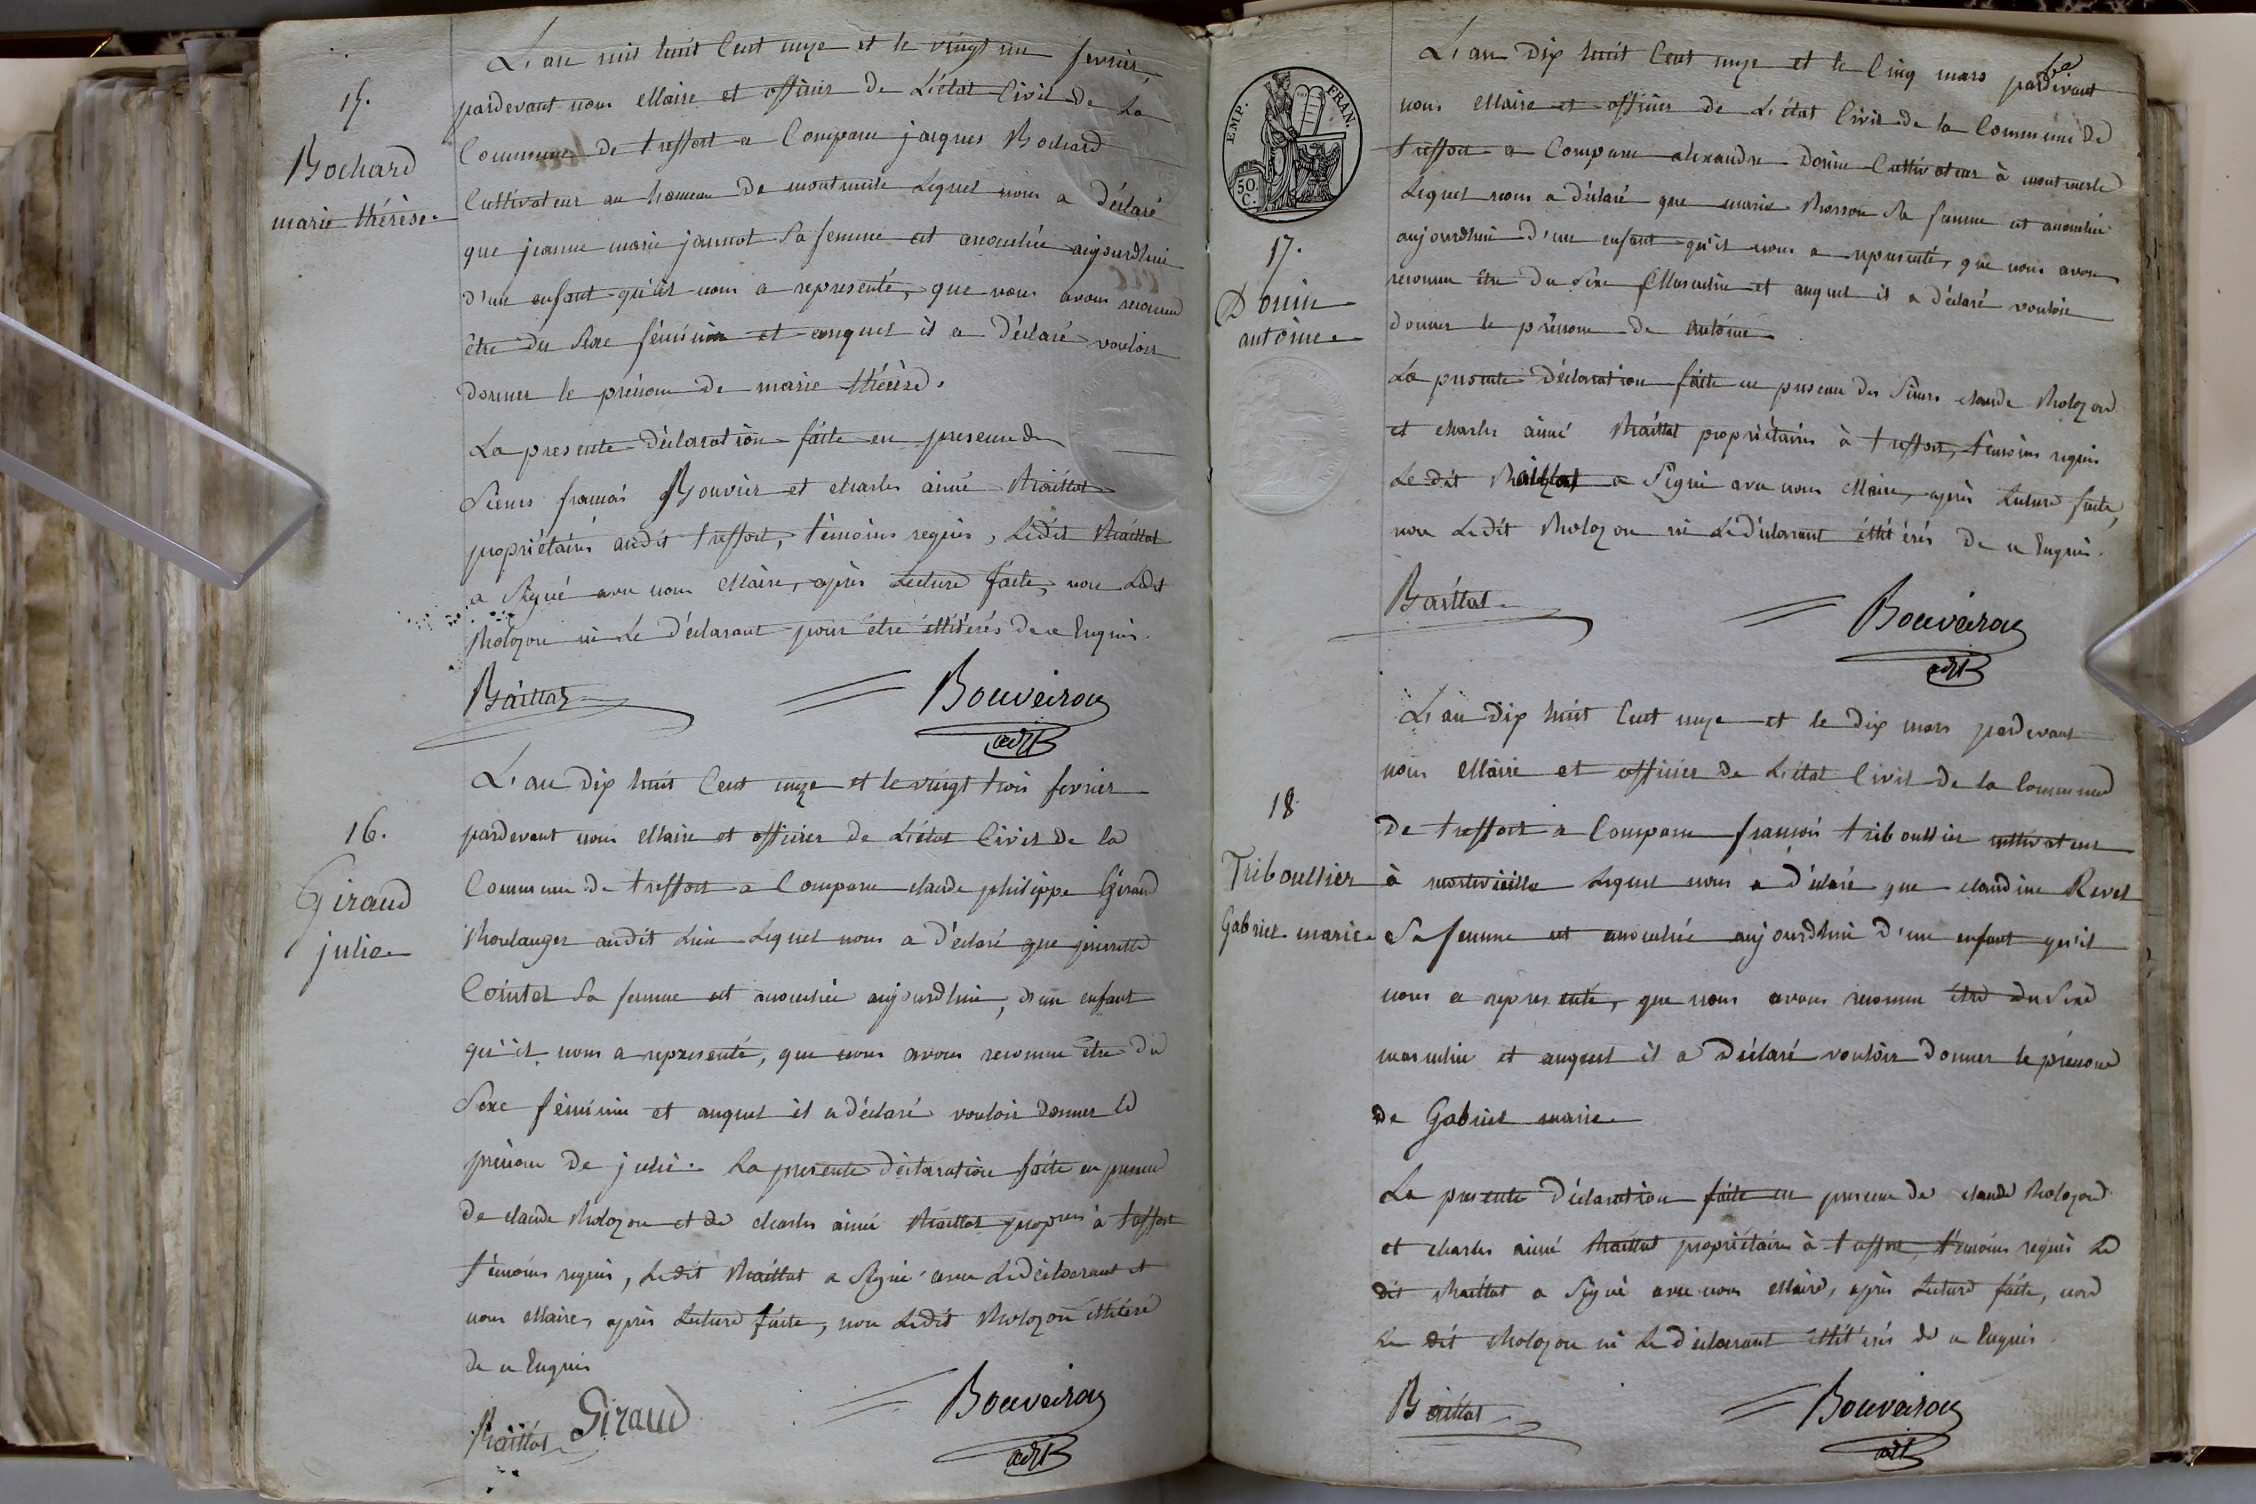 15.
Bochard
marie thérèse.
L'an mil huit Cent onze et le vingt un fevrier,
pardevant nous Maire et officier de L'état Civil de La
Commune de treffort a Comparu jacques Bochard
Cultivateur au hameau de montmerle Lequel nous a déclaré
que jeanne marie jannot Sa femme est accouchée aujourdhui
d'un enfant qu'il nous a representé, que nous avons reconnu
être du Sexe féminin et auquel il a Déclaré vouloir
donner le prénom de marie thérèse.
La presente déclaration faite en presence de
Sieurs francois Bouvier et charles aimé Baillat
propriétaires audit treffort, témoins requis, Ledit Baillat
a Signé avec nous Maire, après Lecture faite, non Ledit
Bolozon ni Le déclarant pour être illitérés de ce Enquis.
Baillat
Bouveirou
adt
16.
Giraud
julie
L'an dix huit Cent onze et le vingt trois fevrier
pardevant nous Maire et officier de L'état Civil de la
Commune de treffort a Comparu claude philippe Giraud
Boulanger audit Lieu Lequel nous a déclaré que pierrette
Cointet Sa femme est accouchée aujourdhui, d'un enfant
qu'il nous a representé, que nous avons reconnu être du
Sexe féminin et auquel il a déclaré vouloir donner le
prénom de julie. La presente déclaration faite en presence
de claude Bolozon et de charles aimé Baillat propres à treffort
témoins requis, Ledit Baillat a Signé avec Le déclarant et
nous Maire, après Lecture faite, non Ledit Bolozon illitéré
de ce Enquis
Baillat Giraud
Bouveirou
adt
EMP. FRAN.
50. C.
17.
Donin
antoine.
L'an Dix huit Cent onze et le Cinq mars pardevant
nous Maire et officier de L'état Civil de la Commune de
treffort a Comparu alexandre Donin Cultivateur à montmerle
Lequel nous a déclaré que marie Sa femme est accouchée
aujourdhui d'un enfant qu'il nous a representé, que nous avons
reconnu être du Sexe Masculin et auquel il a déclaré vouloir
donner le prénom de antoine
La presente Déclaration faite en presence des Sieurs claude Bolozon
et charles aimé Baillat propriétaires à treffort, témoins requis
Le dit Baillat a Signé avec nous Maire, après Lecture faite,
non Ledit Bolozon ni Le déclarant illitérés De ce Enquis.
Baillat
Bouveirou
adt
18
Triboullier
Gabriel marie
L'an Dix huit Cent onze et le dix mars pardevant
nous Maire et officier de L'état Civil de la Commune
de treffort a Comparu francois triboullier cultivateur
à montvieille Lequel nous a déclaré que claudine Revel
Sa femme est accouchée aujourdhui d'un enfant qu'il
nous a representé, que nous avons reconnu être du Sexe
masculin et auquel il a Déclaré vouloir donner le prénom
de Gabriel marie
La presente Déclaration faite en presence de claude Bolozon
et charles aimé Baillat propriétaires à treffort, témoins requis Le
dit Baillat a Signé avec nous Maire, après Lecture faite, non
Le dit Bolozon ni Le déclarant illitérés de ce Enquis.
Baillat
Bouveirou
adt